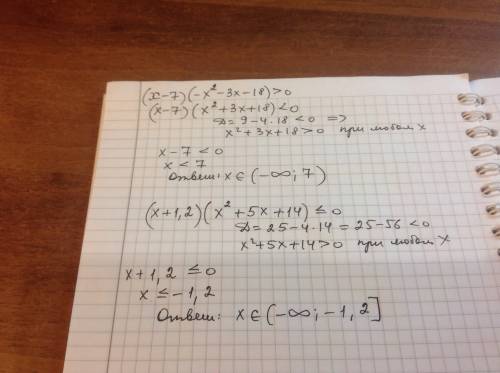 (x-7)(-x²-3x-18)>0
(x-7)(x²+3x+18)<0
D=9-4·18<0 =>
x²+3x+18>0 при любом x
x-7<0
x<7
Ответ: x∈(-∞; 7)
(x+1,2)(x²+5x+14)≤0
D=25-4·14=25-56<0
x²+5x+14>0 при любом x
x+1,2≤0
x≤-1,2
Ответ: x∈(-∞; -1,2]